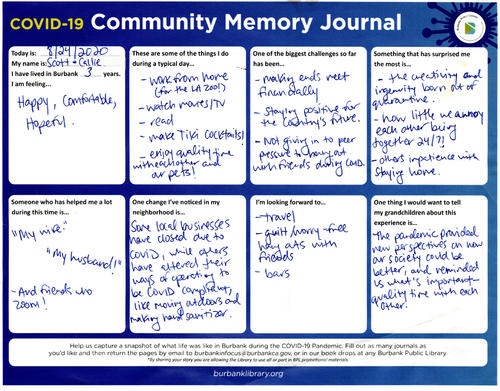 COVID-19 Community Memory Journal
Today is: 8/24/2020
My name is: Scott + Callie
I have lived in Burbank 3 years.
I am feeling...
Happy, Comfortable,
Hopeful.
These are some of the things I do
during a typical day...
- work from home
(for the LA Zoo!)
- watch movies/TV
- read
- make Tiki cocktails!
- enjoy quality time
with each other and
our pets!
One of the biggest challenges so far
has been...
- making ends meet
financially
- Staying positive for
the country's future.
- Not giving in to peer
pressure to hang out
with friends during COVID.
Something that has surprised me
the most is...
- the creativity and
ingenuity born out of
quarantine.
- how little we annoy
each other being
together 24/7!
- others impatience with
staying home.
Someone who has helped me a lot
during this time is...
"My wife."
"My husband!"
- And friends who
zoom!
One change I've noticed in my
neighborhood is...
Some local businesses
have closed due to
COVID, while others
have altered their
ways of operation to
be COVID compliant,
like moving outdoors and
making hand sanitizer.
I'm looking forward to...
- travel
- guilt/worry-free
hang outs with
friends
- bars
One thing I would want to tell
my grandchildren about this
experience is...
The pandemic provided
new perspectives on how
our society could be
better, and reminded
us what's important-
quality time with each
other.
Help us capture a snapshot of what life was like in Burbank during the COVID-19 Pandemic. Fill out as many journals as
you'd like and then return the pages by email to burbankinfocus@burbankca.gov, or in our book drops at any Burbank Public Library.
*By sharing your story you are allowing the Library to use all or part in BPL promotional materials
burbanklibrary.org